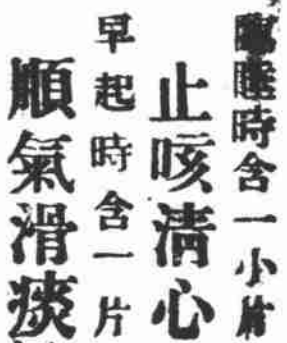 臨睡時含一小片
止咳清心
早起時含一片
順氣滑痰